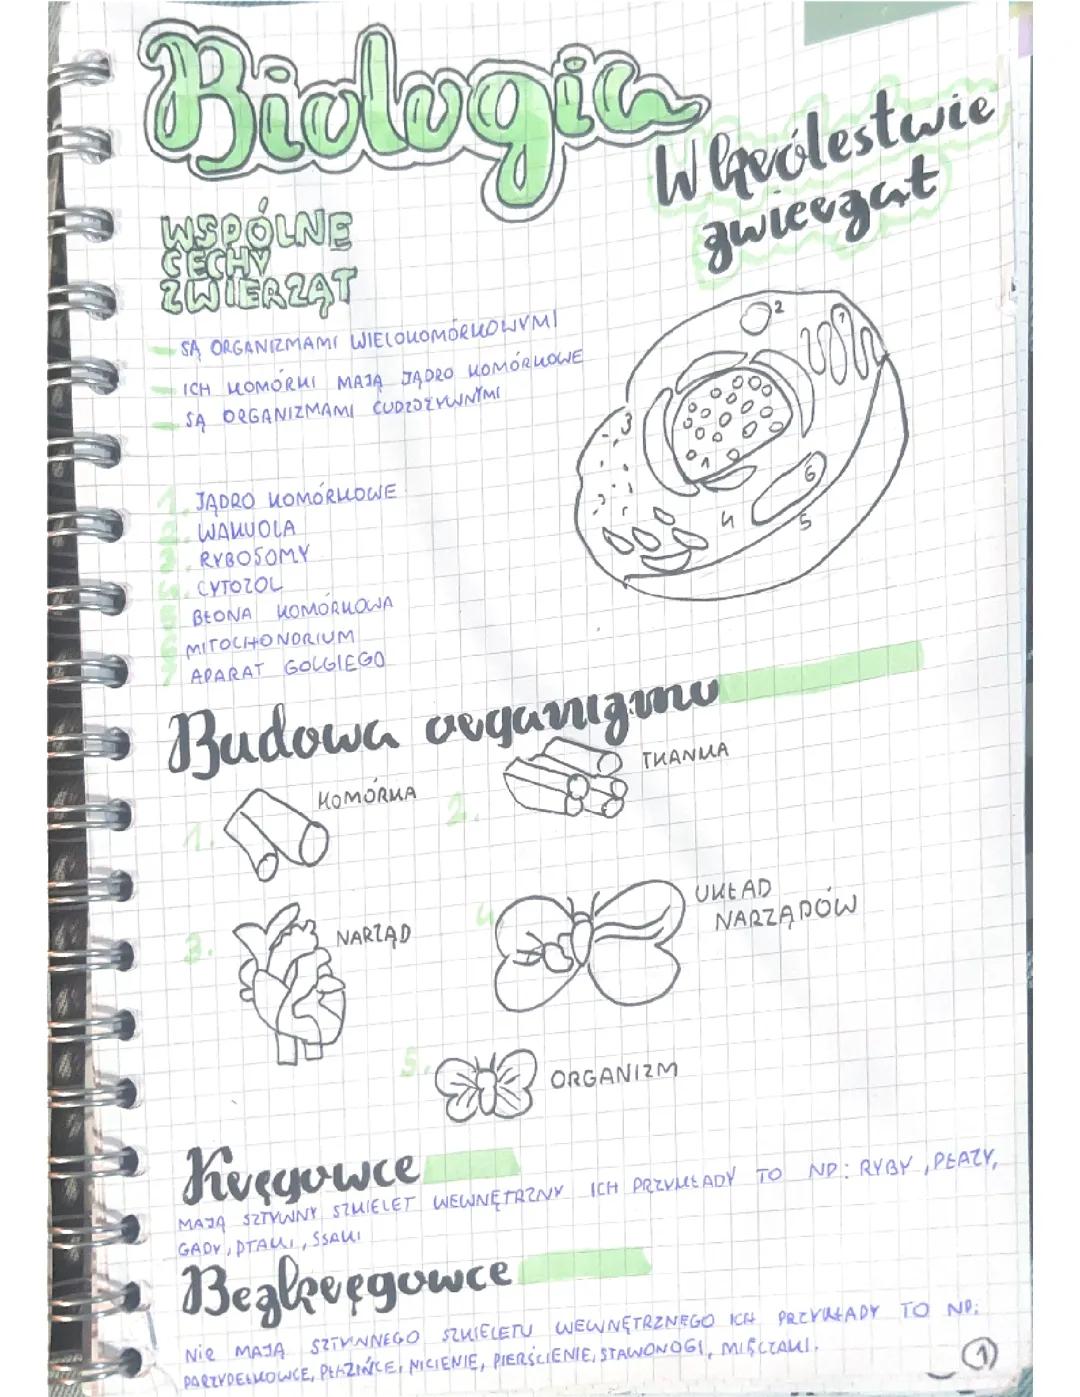 Biologia
W królestwie
zwierząt
WSPÓLNE
CECHY
ZWIERZĄT
- SĄ ORGANIZMAMI WIELOKOMÓRKOWYMI
- ICH KOMÓRKI MAJĄ JĄDRO KOMÓRKOWE
- SĄ ORGANIZMAMI CUDZOŻYWNYMI
1. JĄDRO KOMÓRKOWE
2. WAKUOLA
3. RYBOSOMY
4. CYTOZOL
5 BŁONA KOMÓRKOWA
6 MITOCHONDRIUM
7 APARAT GOLGIEGO
2
7
3
1
6
4
5
Budowa organizmu
1. KOMÓRKA
2. TKANKA
3. NARZĄD
4. UKŁAD
NARZĄDÓW
5. ORGANIZM
Kręgowce
MAJĄ SZTYWNY SZKIELET WEWNĘTRZNY ICH PRZYKŁADY TO NP: RYBY, PŁAZY,
GADY, PTAKI, SSAKI
Bezkręgowce
NIE MAJĄ SZTYWNEGO SZKIELETU WEWNĘTRZNEGO ICH PRZYKŁADY TO NP:
PARZYDEŁKOWCE, PŁAZIŃCE, NICIENIE, PIERŚCIENIE, STAWONOGI, MIĘCZAKI.
1